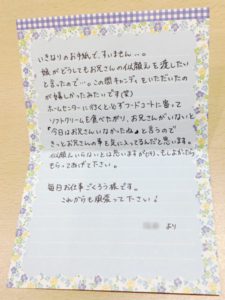 いきなりのお手紙で、すいません…。
娘がどうしてもお兄さんの似顔えを渡したい
と言ったので…。この間キャンディをいただいたの
が嬉しかったみたいです(笑)
ホームセンターに行くと必ずフードコートに寄って
ソフトクリームを食べたがり、お兄さんがいないと
"今日はお兄さんいなかったね♪と言うので
きっとお兄さんの事を気に入ってるんだと思います。
似顔えいらないとは思いますが(汗)、もしよかったら
もらってあげて下さい。
毎日お仕事ごくろう様です。
これからも頑張って下さい!
より